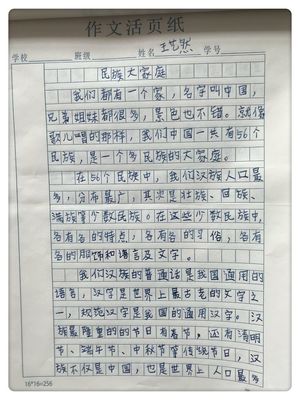 作文活页纸
学校 班级 姓名 王艺然 学号
民族大家庭
我们都有一个家，名字叫中国，
兄弟姐妹都很多，景色也不错。就像
歌儿唱的那样，我们中国一共有56个
民族，是一个多民族的大家庭。
在56个民族中，我们汉族人口最
多，分布最广，其次是壮族、回族、
满族等少数民族。在这些少数民族中，
各有各的特点，各有各的习俗，各有
各的服饰和语言及文字。
我们汉族的普通话是我国通用的
语言，汉字是世界上最古老的文字之
一，规范汉字是我国的通用汉字。汉
族最隆重的的节日有春节，还有清明
节、端午节、中秋节等传统节日，汉
族不仅是中国，也是世界上人口最多
16*16=256